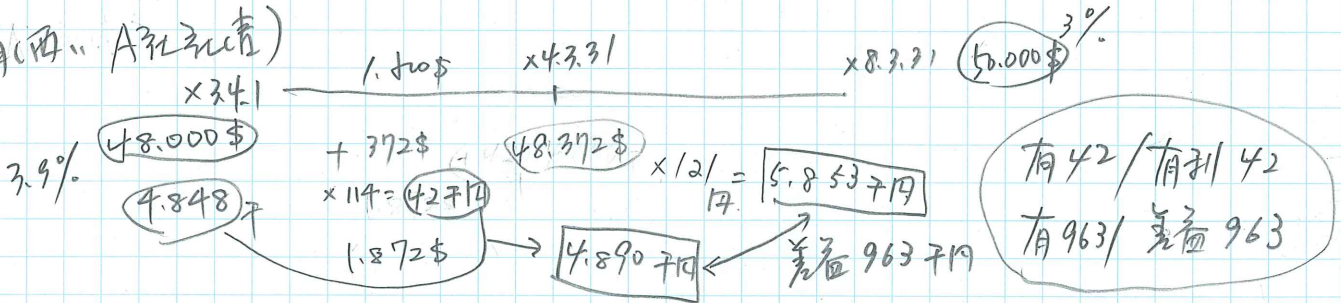 A社社債)
×3.4.1 1.500$ ×4.3.31 ×8.3.31 50.000$ 3%
3.9% 48.000$ + 372$ 48.372$ ×121円 = 5.853千円
4.848千 ×114=42千円
1.872$ 4.890千円 差益 963千円
有42/有利42
有963/差益963